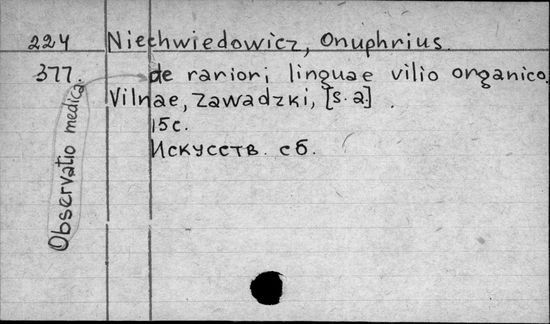 224 Niechwiedowicz, Onuphrius.
377. de rariori linguae vilio organico.
Observatio medica
Vilnae, Zawadzki, [s.a]
15 с.
Искусств. сб.